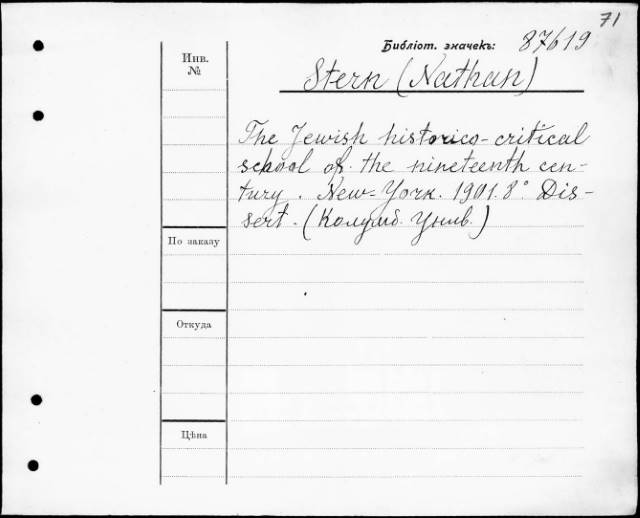 71
Библіот. значекъ: 87619
Инв.
№
Stern (Nathan)
The Jewish historico-critical
school of the nineteenth cen-
tury. New-York. 1901. 8° Dis-
sert. (Колумб. Унив.)
По заказу
Откуда
Цѣна